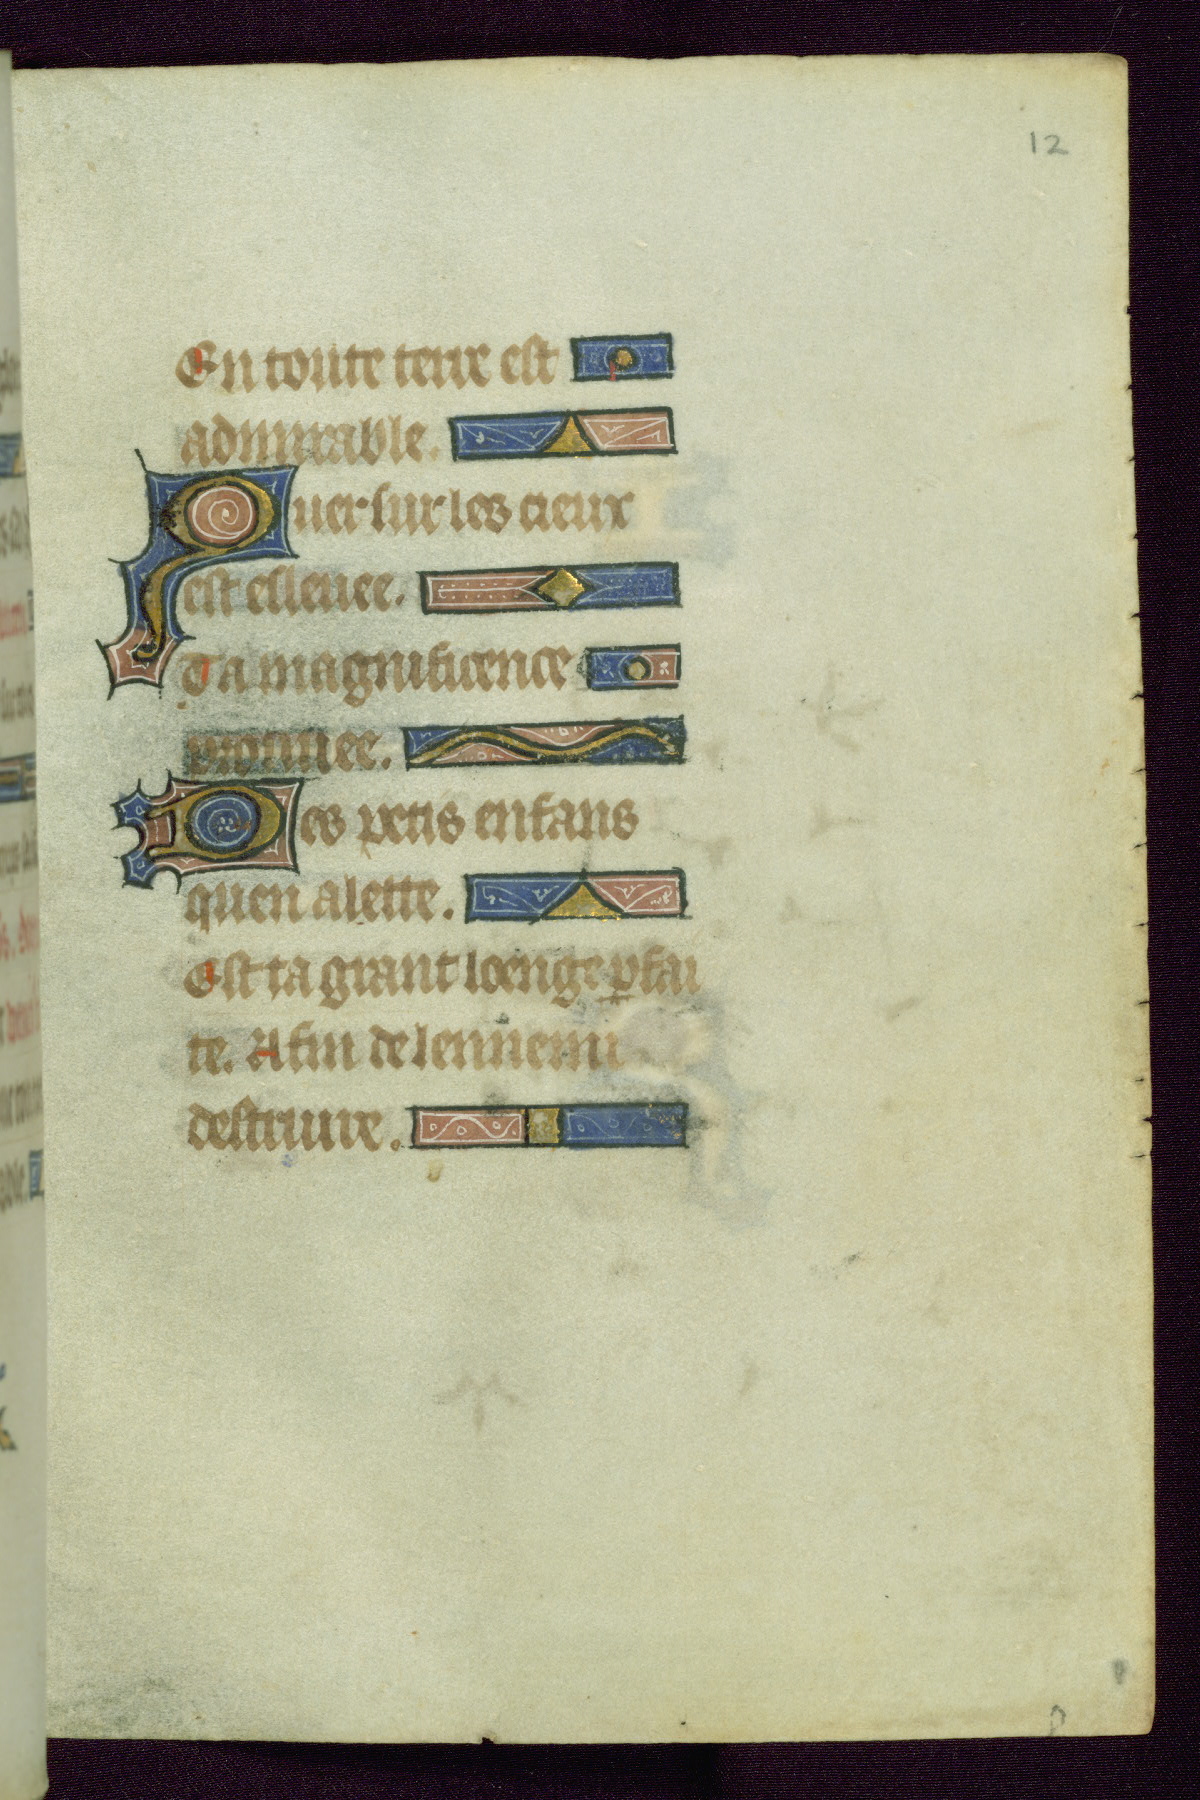 12
En toute terre est
admirable.
Quer sur les cieux
est esleuee.
Ta magnificence
prouuee.
Des petis enfans
quen alette.
Est ta grant loenge ꝑfai
te. Afin de lennemi
destruire.